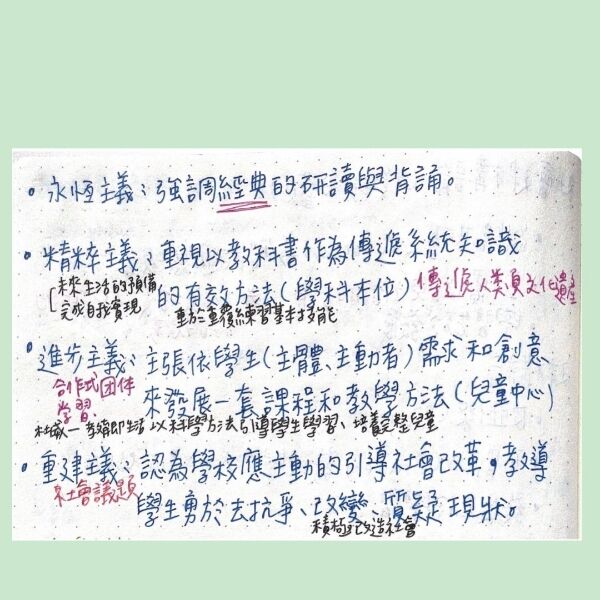 永恆主義：強調經典的研讀與背誦。
精粹主義：重視以教科書作為傳遞系統知識
未來生活的預備
完成自我實現
的有效方法（學科本位）傳遞人類文化遺產
重於重覆練習基本技能
進步主義：主張依學生（主體、主動者）需求和創意
合作式团体
學習
來發展一套課程和教學方法（兒童中心）
杜威－教育即生活 以科學方法引導學生學習、培養完整兒童
重建主義：認為學校應主動的引導社會改革，教導
社會議題
學生勇於去抗爭、改變、質疑現狀。
積極改造社會